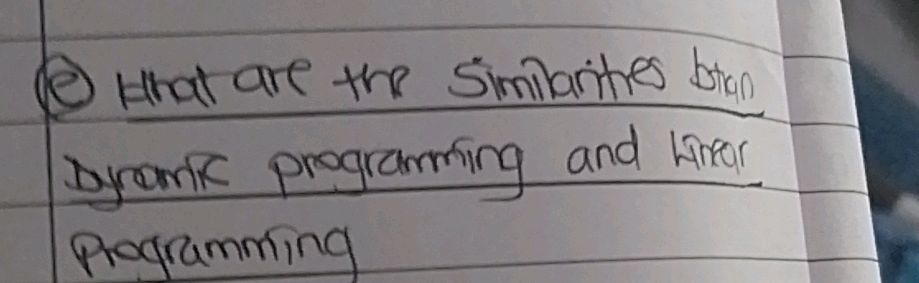 (e) What are the Similarities btwn
Dynamic programming and Linear
Programming